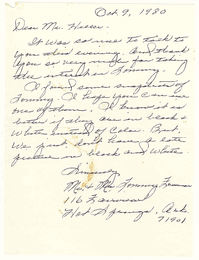 Oct 9, 1980
Dear Mr. Hassor.
It was so nice to talk to
you this evening. And thank
you so very much for taking
the interest in Tommy.
I found some snapshots of
Tommy. I hope you can use
one of them. I know it is
better if they are in black &
white instead of Color. But,
we just don't have a late
picture in black and white.
Sincerely,
Mr. & Mrs. Tommy
116
Hot Springs, Ark.
71901